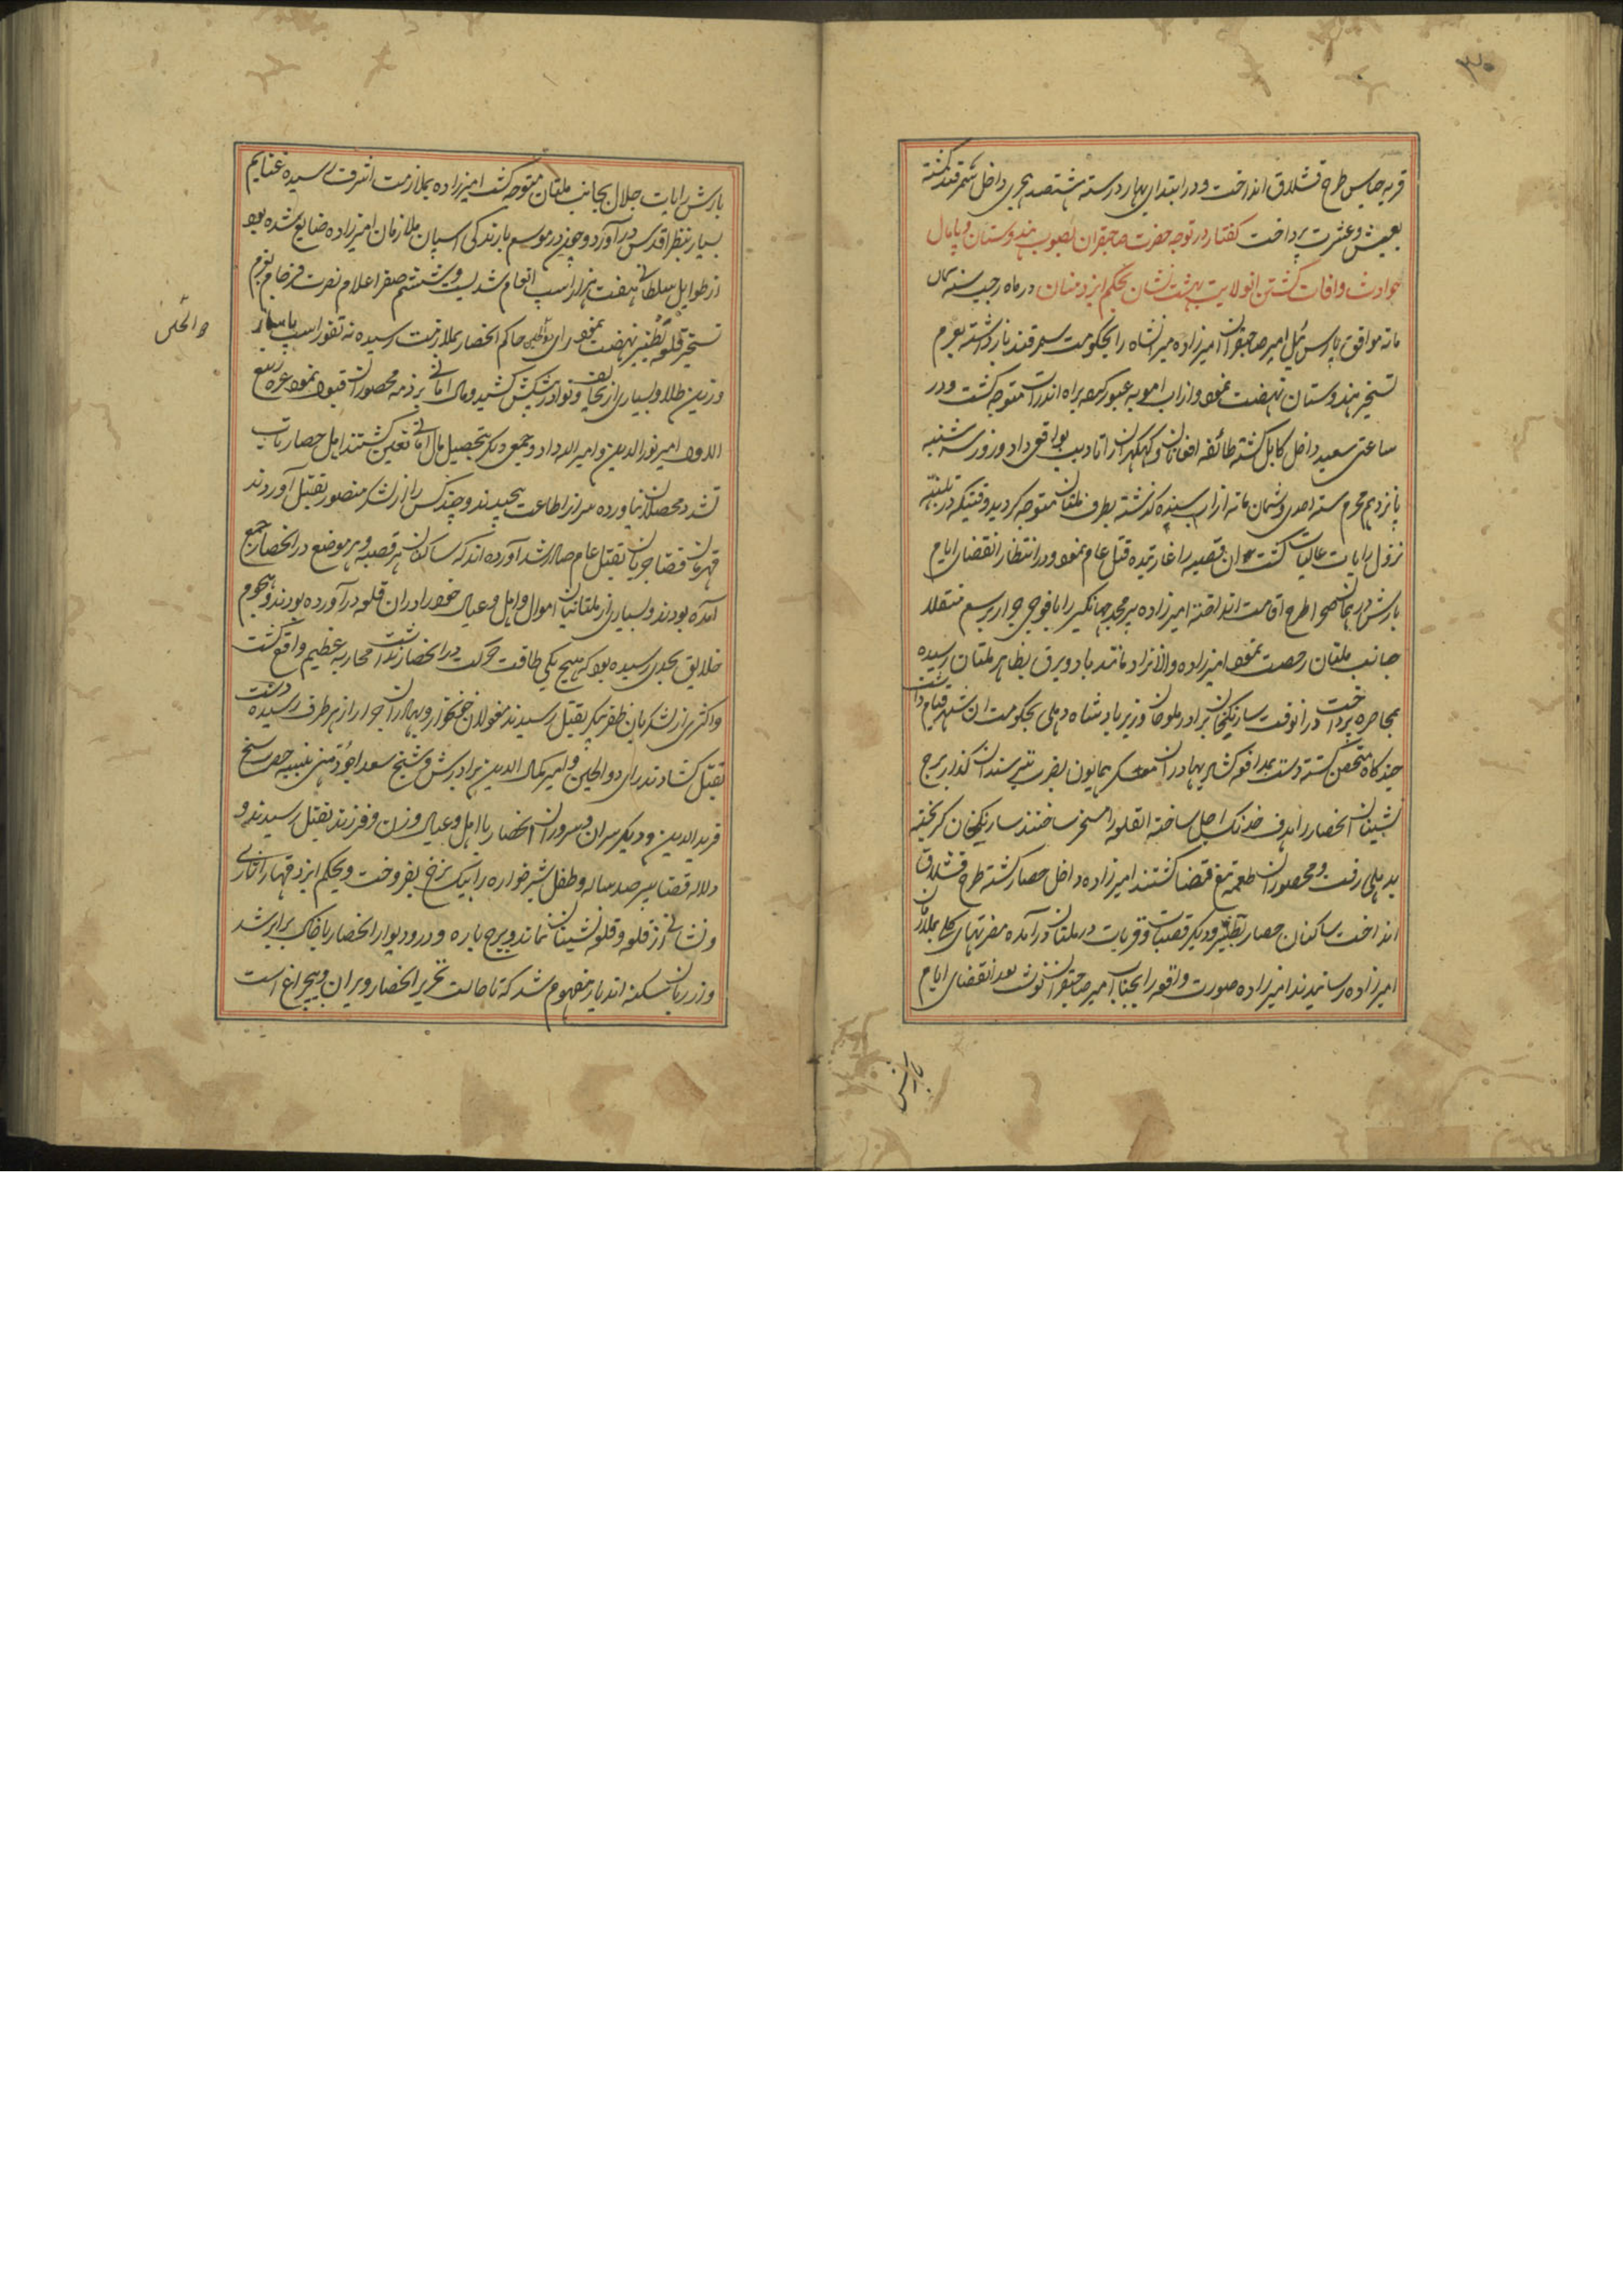 ۳۰
قریه جاس طرح قشلاق انداخت و در ابتدای بهار در سنه هشتصد هجری داخل سمرقند کشته
بعیش و عشرت پرداخت کفتار در توجه حضرت صاحبقران بصوب هندوستان و پامال
حوادث و افات کشتن انولایت بهشت نشان بحکم ایزد منان در ماه رجب سنه ثمان
مائه موافق پارس ئیل امیر صاحبقران امیرزاده میرانشاه را بحکومت سمرقند باز داشته بعزم
تسخیر هندوستان نهضت نمود و از اب امویه عبور کرده براه اندراب متوجه کشت و در
ساعتی سعید داخل کابل کشته طائفه افغانان و کهکهران را تادیب بواقعی داد و روز سه شنبه
پانزدهم محرم سنه احدی و ثمان مائه از اب سند کذشته بطرف ملتان متوجه کردید وقتیکه در تلنبه
نزول رایات عالیات کشت ان قصبه را غارتیده قتل عام نمود و در انتظار انقضای ایام
بارش در همان صحرا طرح اقامت انداخته امیرزاده پیر محمد جهانکیر را با فوجی جرار برسم منقلا
جانب ملتان رخصت نمود امیرزاده والانژاد مانند باد و برق بظاهر ملتان رسیده
بمحاصره پرداخت در انوقت سارنکخان برادر ملوخان وزیر بادشاه دهلی بحکومت ان شهر قیام داشت
چند کاه متحصن کشته دست بمدافعه کشاد بهادران معسکر همایون بضرب تیر سندان کذار برج
نشینان انحصار را هدف خدنک اجل ساخته انقلعه را مسخر ساختند سارنکخان کریخته
بدهلی رفت و محصوران طعمه تیغ قضا کشتند امیرزاده داخل حصار کشته طرح قشلاق
انداخت ساکنان حصار بطنیر و دیکر قصبات و قریات در ملتان در آمده مضرتهای کلی بملازمان
امیرزاده رسانیدند امیرزاده صورت واقعه را بجناب امیر صاحبقران نوشت بعد انقضای ایام
بارش
بارش رایات جلال بجانب ملتان متوجه کشت امیرزاده بملازمت اشرف رسیده غنایم
بسیار بنظر اقدس در آورد و چون در موسم بارندکی اسپان ملازمان امیرزاده ضایع شده بود
از طوایل سلطانی هفت هزار اسب انعام شد بیست و ششم صفر اعلام نصرت فرجام بعزم
تسخیر قلعه بطنیر نهضت نمود رای دولجین حاکم انحصار بملازمت رسیده نه تقوز اسب با ساز
و زین طلا و بسیاری از تحایف و نوادر پیشکش کشید و مال امانی بر ذمه محصوران قبول نمود غره ربیع
الاول امیر نورالدین و امیر الله داد و جمعی دیکر بتحصیل مال امانی تعین کشتند اهل حصار تاب
تشدد محصلان نیاورده سر از اطاعت پیچیدند و چند کس را از لشکر منصور بقتل آوردند
قهرمان قضا جریان بقتل عام صادر شد آورده اند که ساکنان هر قصبه و هر موضع در انحصار جمع
آمده بودند و بسیاری از ملتانیان اموال و اهل و عیال خود را در ان قلعه در آورده بودند و هجوم
خلایق بحدی رسیده بود که هیچ یکی طاقت حرکت در انحصار نداشت محاربه عظیم واقع کشت
و اکثری از لشکریان ظفر پیکر بقتل رسیدند مغولان خونخوار و بهادران جرار از هر طرف رسیده دست
بقتل کشادند رای دولجین و امیر کمال الدین برادرش و شیخ سعد اجودهنی نبیره حضرت شیخ
فرید الدین و دیکر سران و سروران انحصار با اهل و عیال و زن و فرزند بقتل رسیدند و
دلال قضا پیر صد ساله و طفل شیرخواره را بیک نرخ بفروخت و بحکم ایزد قهار اثاری
و نشانی از قلعه و قلعه نشینان نماند و برج باره و در و دیوار انحصار با خاک برابر شد
و از زبان سکنه اندیار مفهوم شد که تا حالت تحریر انحصار ویران و بیچراغ است